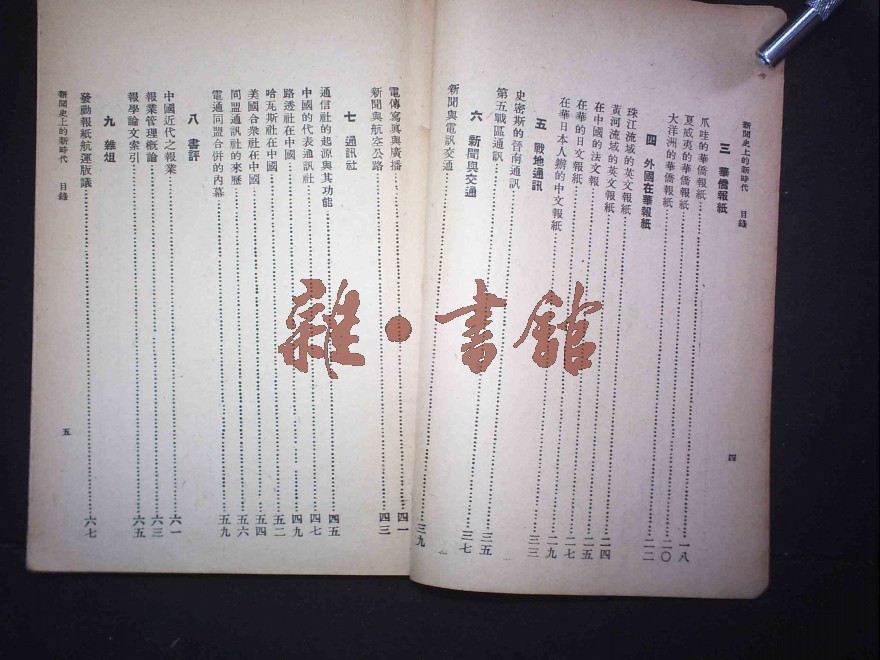 新聞史上的新時代 目錄
四
三 華僑報紙
爪哇的華僑報紙……一八
夏威夷的華僑報紙……二〇
大洋洲的華僑報紙……二二
四 外國在華報紙
珠江流域的英文報紙……二四
黃河流域的英文報紙……二五
在中國的法文報……二七
在華的日文報紙……二九
在華日本人辦的中文報紙……三三
五 戰地通訊
史密斯的晉南通訊……三五
第五戰區通訊……三七
六 新聞與交通
新聞與電訊交通……三九
電傳寫真與廣播……四一
新聞與航空公路……四三
七 通訊社
通信社的起源與其功能……四五
中國的代表通訊社……四七
路透社在中國……四九
哈瓦斯社在中國……五二
美國合衆社在中國……五四
同盟通訊社的來歷……五六
電通同盟合併的內幕……五九
八 書評
中國近代之報業……六一
報業管理概論……六三
報學論文索引……六五
九 雜俎
發動報紙航運版議……六七
新聞史上的新時代 目錄
五
雜·書館